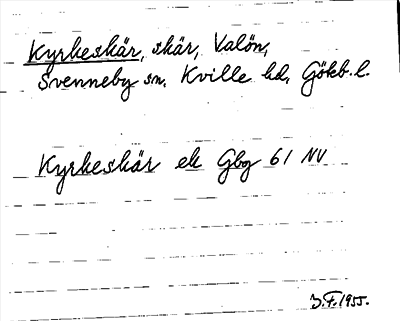 Kyrkeskär, skär, Valön,
Svenneby sn, Kville hd, Göteb. l.
Kyrkeskär ek Gbg 61 NV
1955.